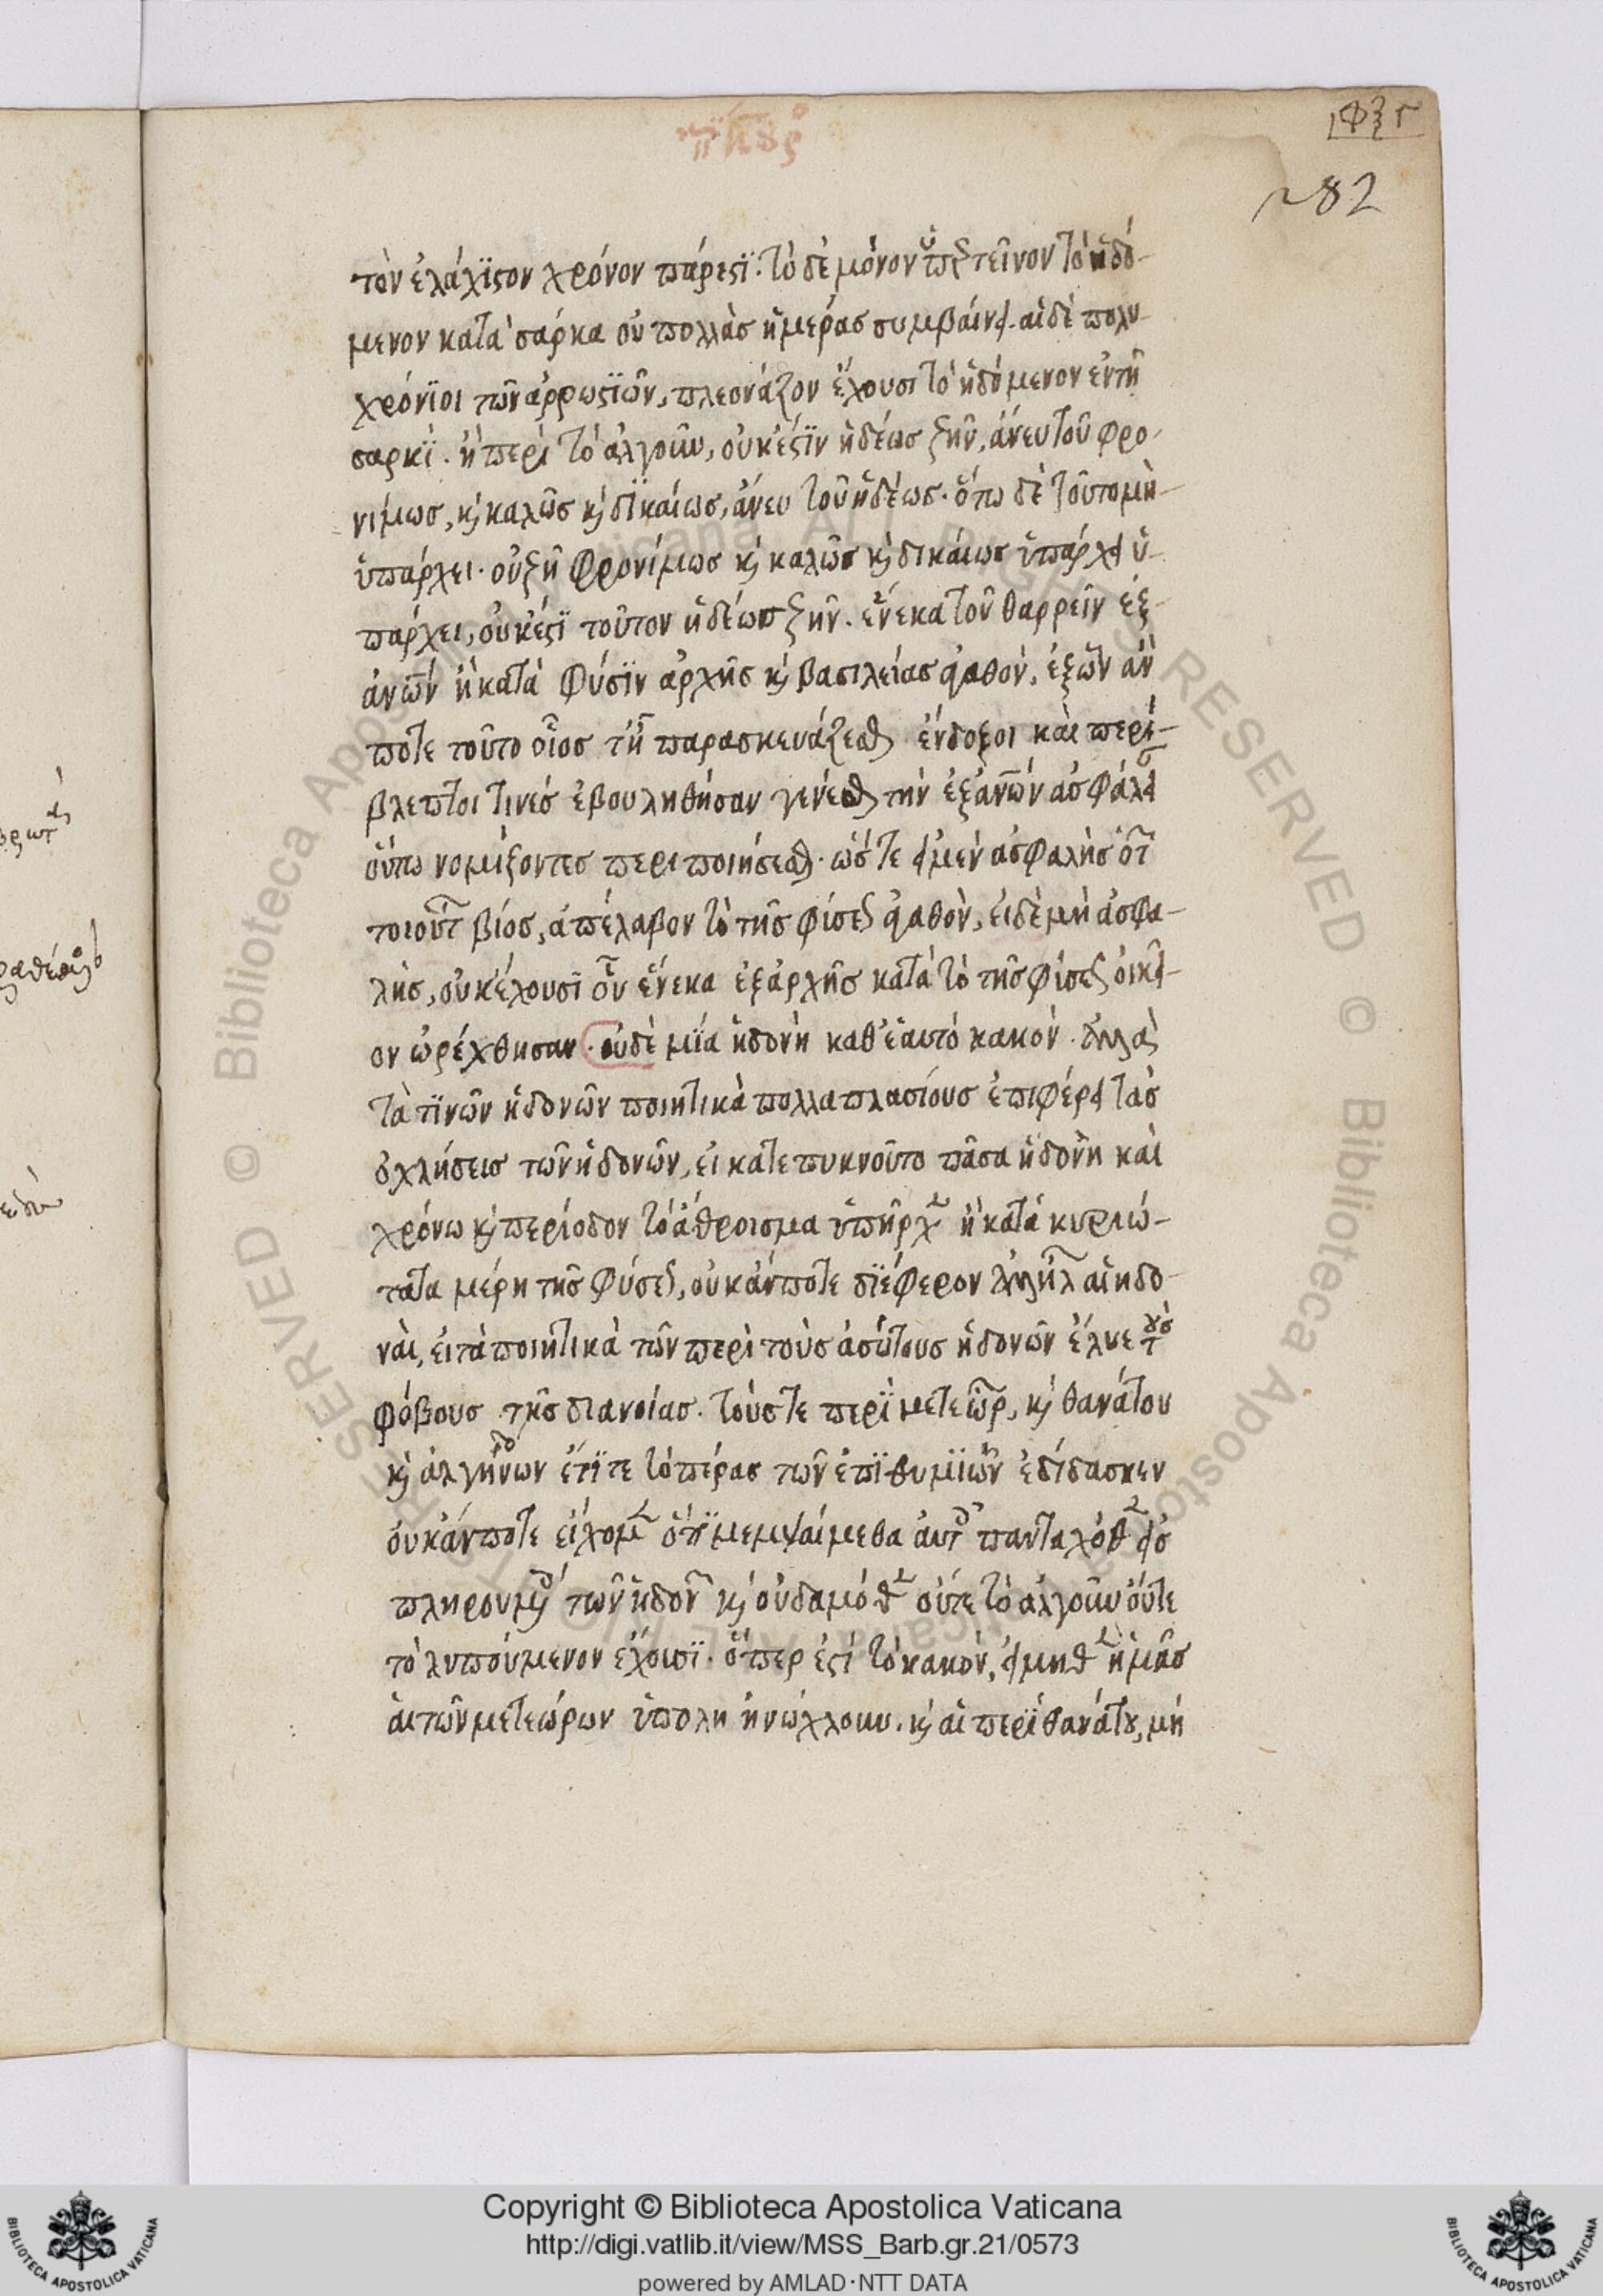 282
τὸν ἐλάχϊστον χρόνον πάρεστϊ. τὸ δὲ μόνον ὑπερτεῖνον τὸ ἡδό-
μενον κατὰ σάρκα οὐ πολλὰς ἡμέρας συμβαίνει. αἱ δὲ πολυ-
χρόνϊοι τῶν ἀρρωστϊῶν, πλεονάζον ἔχουσι τὸ ἡδόμενον ἐν τῆ
σαρκΐ. ἤπερὶ τὸ ἀλγοῦν, οὐκ ἔστϊν ἡδέως ζῆν, ἄνευ τοῦ φρο-
νίμως, καὶ καλῶς καὶ δϊκαίως, ἄνευ τοῦ ἡδέως. ὅτω δὲ τοῦτο μὴ
ὑπάρχει. οὐ ζῆ φρονίμως καὶ καλῶς καὶ δικαίως ὑπάρχει ὑ-
πάρχει, οὐκ ἔστϊ τοῦτον ἡδέως ζῆν. ἕνεκα τοῦ θαρρεῖν ἐξ
ἀνων ἠ κατὰ φύσϊν ἀρχῆς καὶ βασιλείας ἀγαθόν, ἐξ ὧν ἂν
ποτε τοῦτο οἷος τῆ παρασκευάζεσθαι ἔνδοξοι καὶ περί-
βλεπτοι τινὲς ἐβουλήθησαν γενέσθαι τὴν ἐξ ἀνων ἀσφάλει
οὕτω νομίζοντες περιποιήσεσθαι. ὥστε εἰ μὲν ἀσφαλὴς ὁ τ
τοιοῦτ βίος, ἀπέλαβον τὸ τῆς φύσεως ἀγαθὸν, εἰ δὲ μὴ ἀσφα-
λὴς, οὐκ ἔχουσϊ οὗ ἕνεκα ἐξ ἀρχῆς κατὰ τὸ τῆς φύσεως οἰκεῖ-
ον ὠρέχθησαν. οὐδὲ μϊα ἡδονὴ καθ' ἑαυτὸ κακόν. ἀλλὰ
τὰ τϊνῶν ἡδονῶν ποιητικὰ πολλαπλασίους ἐπιφέρει τὰς
ὀχλήσεις τῶν ἡδονῶν, εἰ κατεπυκνοῦτο πᾶσα ἡδονὴ καὶ
χρόνω καὶ περίοδον τὸ ἄθροισμα ὑπῆρχεν ἢ κατὰ κυριώ-
τατα μέρη τῆς φύσεως, οὐκ ἄν ποτε δϊέφερον ἀλλήλ αἱ ἡδο-
ναὶ, εἰ τὰ ποιητικὰ τῶν περὶ τοὺς ἀσώτους ἡδονῶν ἔλυε τοὺς
φόβους τῆς διανοίας. τούς τε περϊ μετεώρ, καὶ θανάτου
καὶ ἀλγηδόνων ἔτϊ τε τὸ πέρας τῶν ἐπϊθυμϊῶν ἐδίδασκεν
οὐκ ἄν ποτε εἴχομεν ὅτϊ μεμψαίμεθα αὐτ πανταχόθεν εἰσ
πληρουμ τῶν ἡδον καὶ οὐδαμόθεν οὔτε τὸ ἀλγοῦν οὔτε
τὸ λυπούμενον ἔχουσϊ. ὅπερ ἐστὶ τὸ κακόν, εἰ μηθὲν ἡμᾶς
αἱ τῶν μετεώρων ὑποψη ἠνώχλουν. καὶ αἱ περϊ θανάτου, μή
Copyright © Biblioteca Apostolica Vaticana
http://digi.vatlib.it/view/MSS_Barb.gr.21/0573
powered by AMLAD·NTT DATA